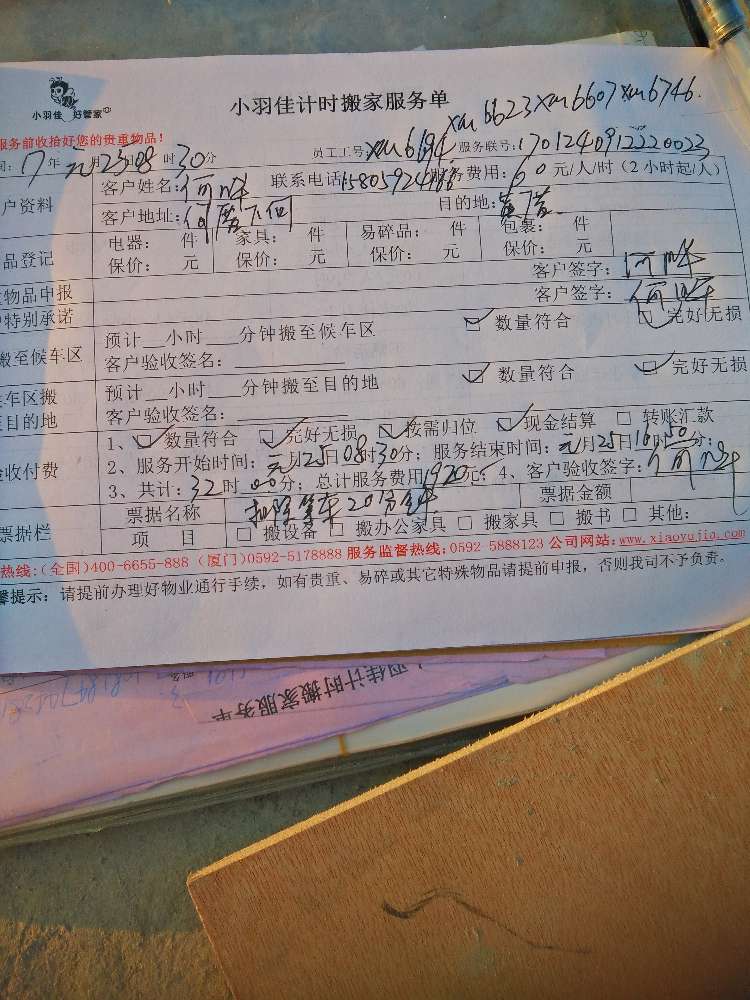 小羽佳 好管家
小羽佳计时搬家服务单
xm6623xm6607xm6746.
服务前收拾好您的贵重物品!
间: 17年元月25日08时30分 员工工号: xm6194 服务联号: 1701240912220023
户资料 客户姓名: 何 联系电话: 服务费用: 60元/人/时(2小时起/人)
客户地址: 何厝下何 目的地:
品登记 电器: 件 家具: 件 易碎品: 件 包裹: 件
保价: 元 保价: 元 保价: 元 保价: 元
物品申报 客户签字: 何
特别承诺 客户签字: 何
搬至候车区 预计__小时___分钟搬至候车区 数量符合 完好无损
客户验收签名:
车区搬 预计__小时___分钟搬至目的地 数量符合 完好无损
至目的地 客户验收签名:
1、数量符合 完好无损 按需归位 现金结算 转账汇款
验收付费 2、服务开始时间: 元月25日08时30分; 服务结束时间: 元月25日16时50分;
3、共计: 32时00分; 总计服务费用1920元; 4、客户验收签字: 何
票据栏 票据名称 扣除等车20分钟 票据金额
项 目 搬设备 搬办公家具 搬家具 搬书 其他:
热线:(全国)400-6655-888 (厦门)0592-5178888 服务监督热线:0592-5888123 公司网站:www.xiaoyujia.com
馨提示: 请提前办理好物业通行手续, 如有贵重、易碎或其它特殊物品请提前申报, 否则我司不予负责。
小羽佳计时搬家服务单